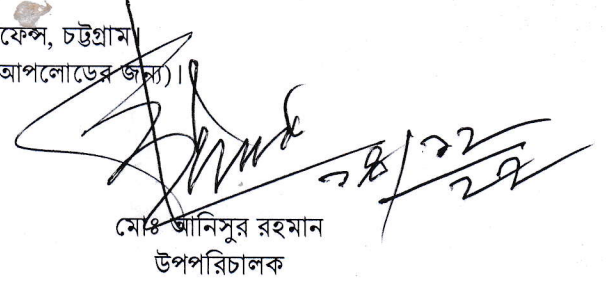 ফেন্স, চট্টগ্রাম।
আপলোডের জন্য)।
মোঃ আনিসুর রহমান
উপপরিচালক